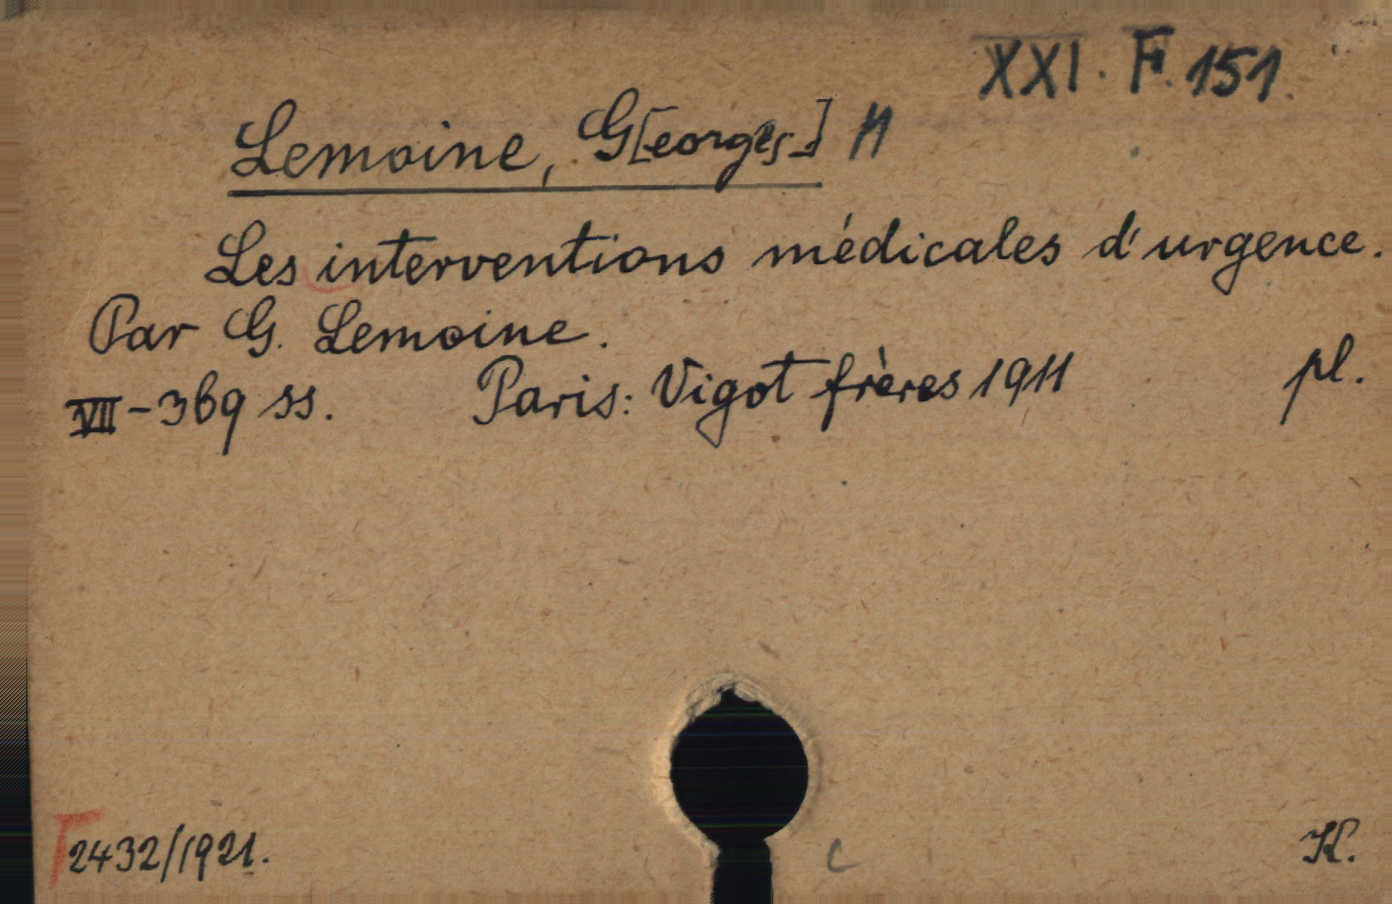 XXI. F. 151.
Lemoine, G[eorges]
Les interventions médicales d'urgence.
Par G. Lemoine.
VII-369 ss. Paris: Vigot frères 1911 pl.
2432/1921. c K.